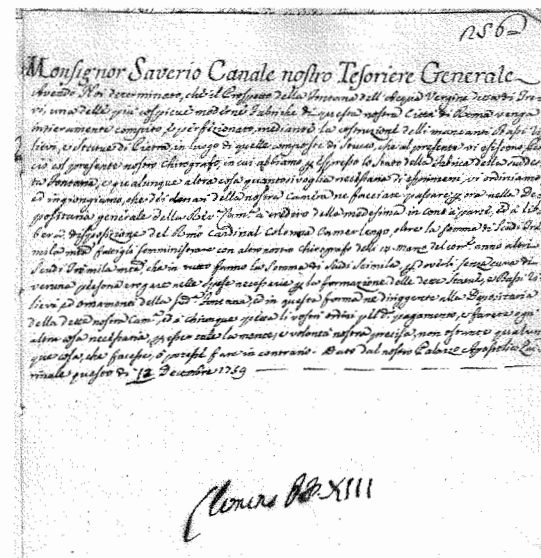 256
Monsignor Saverio Canale nostro Tesoriere Generale
Avendo Noi determinato, che il Prospetto della Fontana dell'Acqua Vergine detta di Tre=
vi, una delle più cospicue moderne Fabriche di questa nostra Città di Roma venga
intieramente compito, e perfezionato, mediante la costruzione delli mancanti Bassi Ri=
lievi, e Statue di Pietra, in luogo di quelle composte di Stucco, che al presente vi esistono,
col presente nostro Chirografo, in cui abbiamo per espresso lo Stato della Fabrica della sudde=
ta Fontana, e qualunque altra cosa quantosivoglia necessaria di esprimersi, vi ordiniamo,
ed ingiongiamo, che dei denari della nostra Camera ne facciate passare, ora nella De=
positaria generale della Rev. Cam.a a credito della medesima in conto à parte, ed à li=
bera disposizione del Cardinal Colonna Camerlengo, oltre la somma di Scudi Tre
mila mta fattigli somministrare con altro nostro Chirografo delli Marzo del cor. anno altri
Scudi Tremila mta, che in tutto fanno la Somma di Scudi Seimila, senza cura di
veruna persona erogare nelle spese necessarie la formazione delle dette Statue, e Bassi Ri=
lievi, ed ornamenti della Fontana, ed in questa forma ne diriggerete alla Depositaria
della detta nostra Cam. ed à chiunque spetta li vostri ordini pagamento, e farete ogn'
altra cosa necessaria, essere tale la mente, e volontà nostra precisa, non ostante qualun=
que cosa, che facesse, ò potesse fare in contrario. Dato dal nostro Palazzo Apostolico Qui=
rinale questo dì 12 Decembre 1759
Clemens PP. XIII